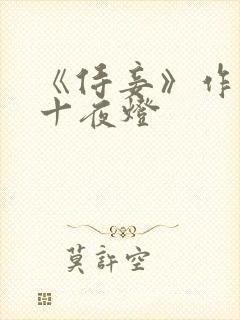 《侍妾》作
十夜燈
莫許空